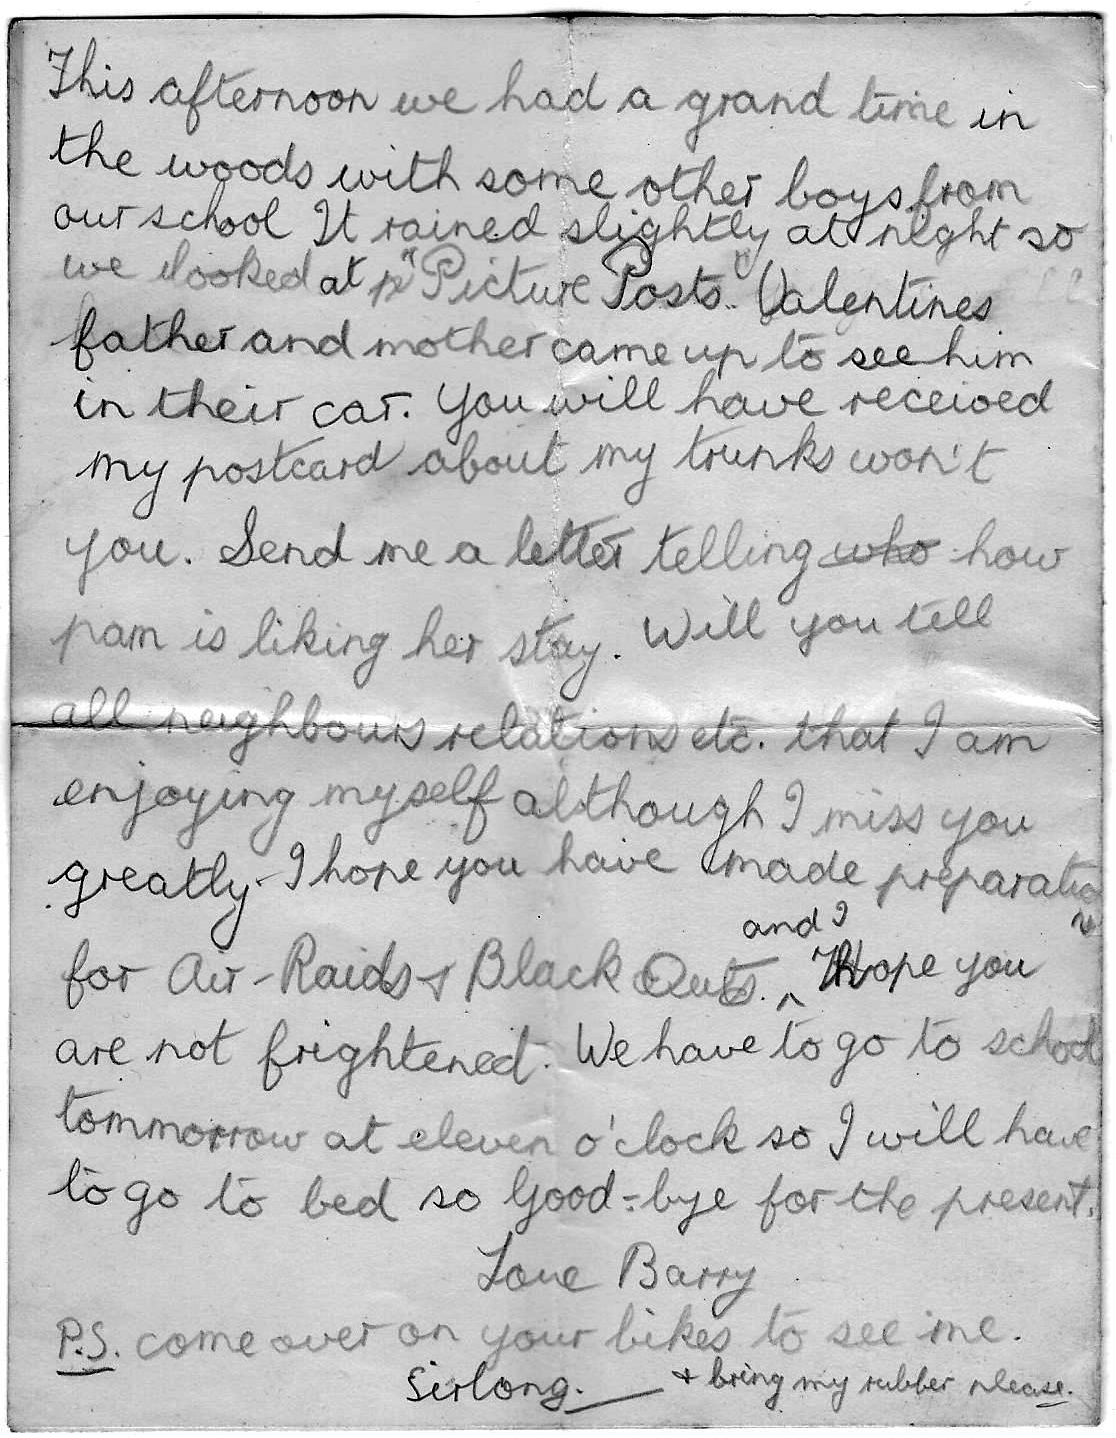 This afternoon we had a grand time in
the woods with some other boys from
our school It rained slightly at night so
we looked at "Picture Posts". Valentines
father and mother came up to see him
in their car. You will have received
my postcard about my trunks won't
you. Send me a letter telling who how
pam is liking her stay. Will you tell
all neighbours relations etc. that I am
enjoying myself although I miss you
greatly. I hope you have made preparatio
ns
and I
for Air-Raids + Black Outs. ^ Hope you
are not frightened. We have to go to school
tommorrow at eleven o'clock so I will have
to go to bed so Good-bye for the present.
Love Barry
P.S. come over on your bikes to see me.
Serlong. + bring my rubber please.